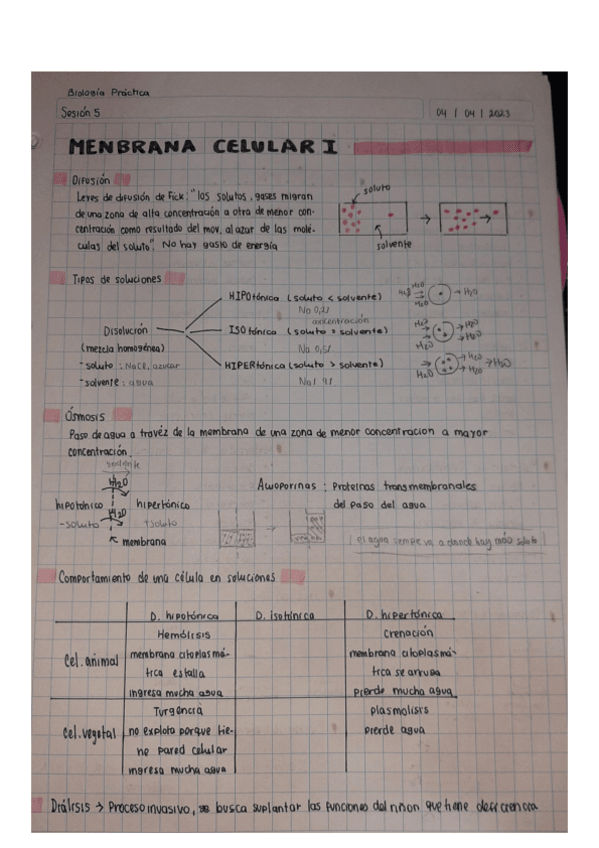 Biología Práctica
Sesión 5
04 / 04 / 2023
MENBRANA CELULAR I
Difusión
Leyes de difusión de Fick: "los solutos, gases migran
de una zona de alta concentración a otra de menor con-
centración como resultado del mov. al azar de las molé-
culas del soluto". No hay gasto de energía
soluto
solvente
Tipos de soluciones
HIPOtónica (soluto < solvente)
Disolución
ISOtónica (soluto = solvente)
concentración
(mezcla homogénea)
- soluto : NaCl, azucar
HIPERtónica (soluto > solvente)
- solvente : agua
H2O
H2O
H2O
H2O
H2O
H2O
H2O
H2O
H2O
Ósmosis
Paso de agua a travéz de la membrana de una zona de menor concentracion a mayor
concentración.
solvente
H2O
hipotónico hipertónico
H2O
- soluto + soluto
membrana
Acuoporinas : Proteínas transmembranales
del paso del agua
el agua sempe va a donde hay más soluto
Comportamiento de una célula en soluciones
D. hipotónica D. isotónica D. hipertónica
Cel. animal
Hemólisis
membrana citoplasmá-
tica estalla
ingresa mucha agua
Crenación
membrana citoplasmá-
tica se arruga
pierde mucha agua
Cel. vegetal
Turgencia
no explota porque tie-
ne pared celular
ingresa mucha agua
plasmolisis
pierde agua
Diálisis → Proceso invasivo, busca suplantar las funciones del riñon que tiene deficiencia